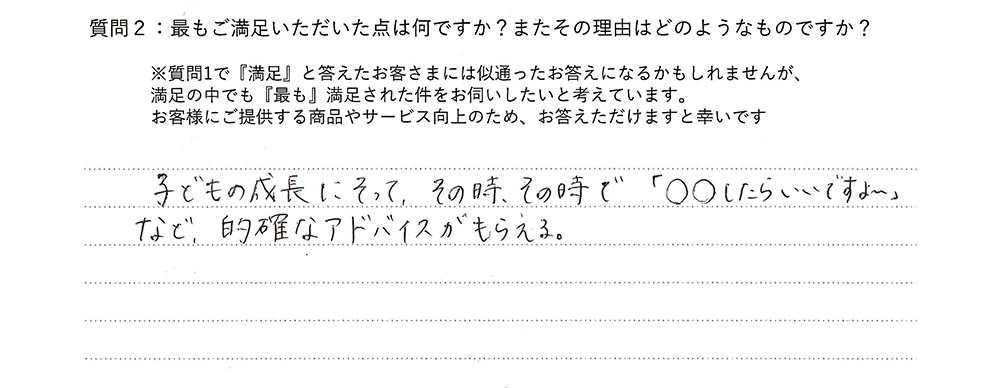 質問２：最もご満足いただいた点は何ですか？またその理由はどのようなものですか？
※質問1で『満足』と答えたお客さまには似通ったお答えになるかもしれませんが、
満足の中でも『最も』満足された件をお伺いしたいと考えています。
お客様にご提供する商品やサービス向上のため、お答えただけますと幸いです
子どもの成長にそって、その時、その時で「○○したらいいですよ〜」
など、的確なアドバイスがもらえる。